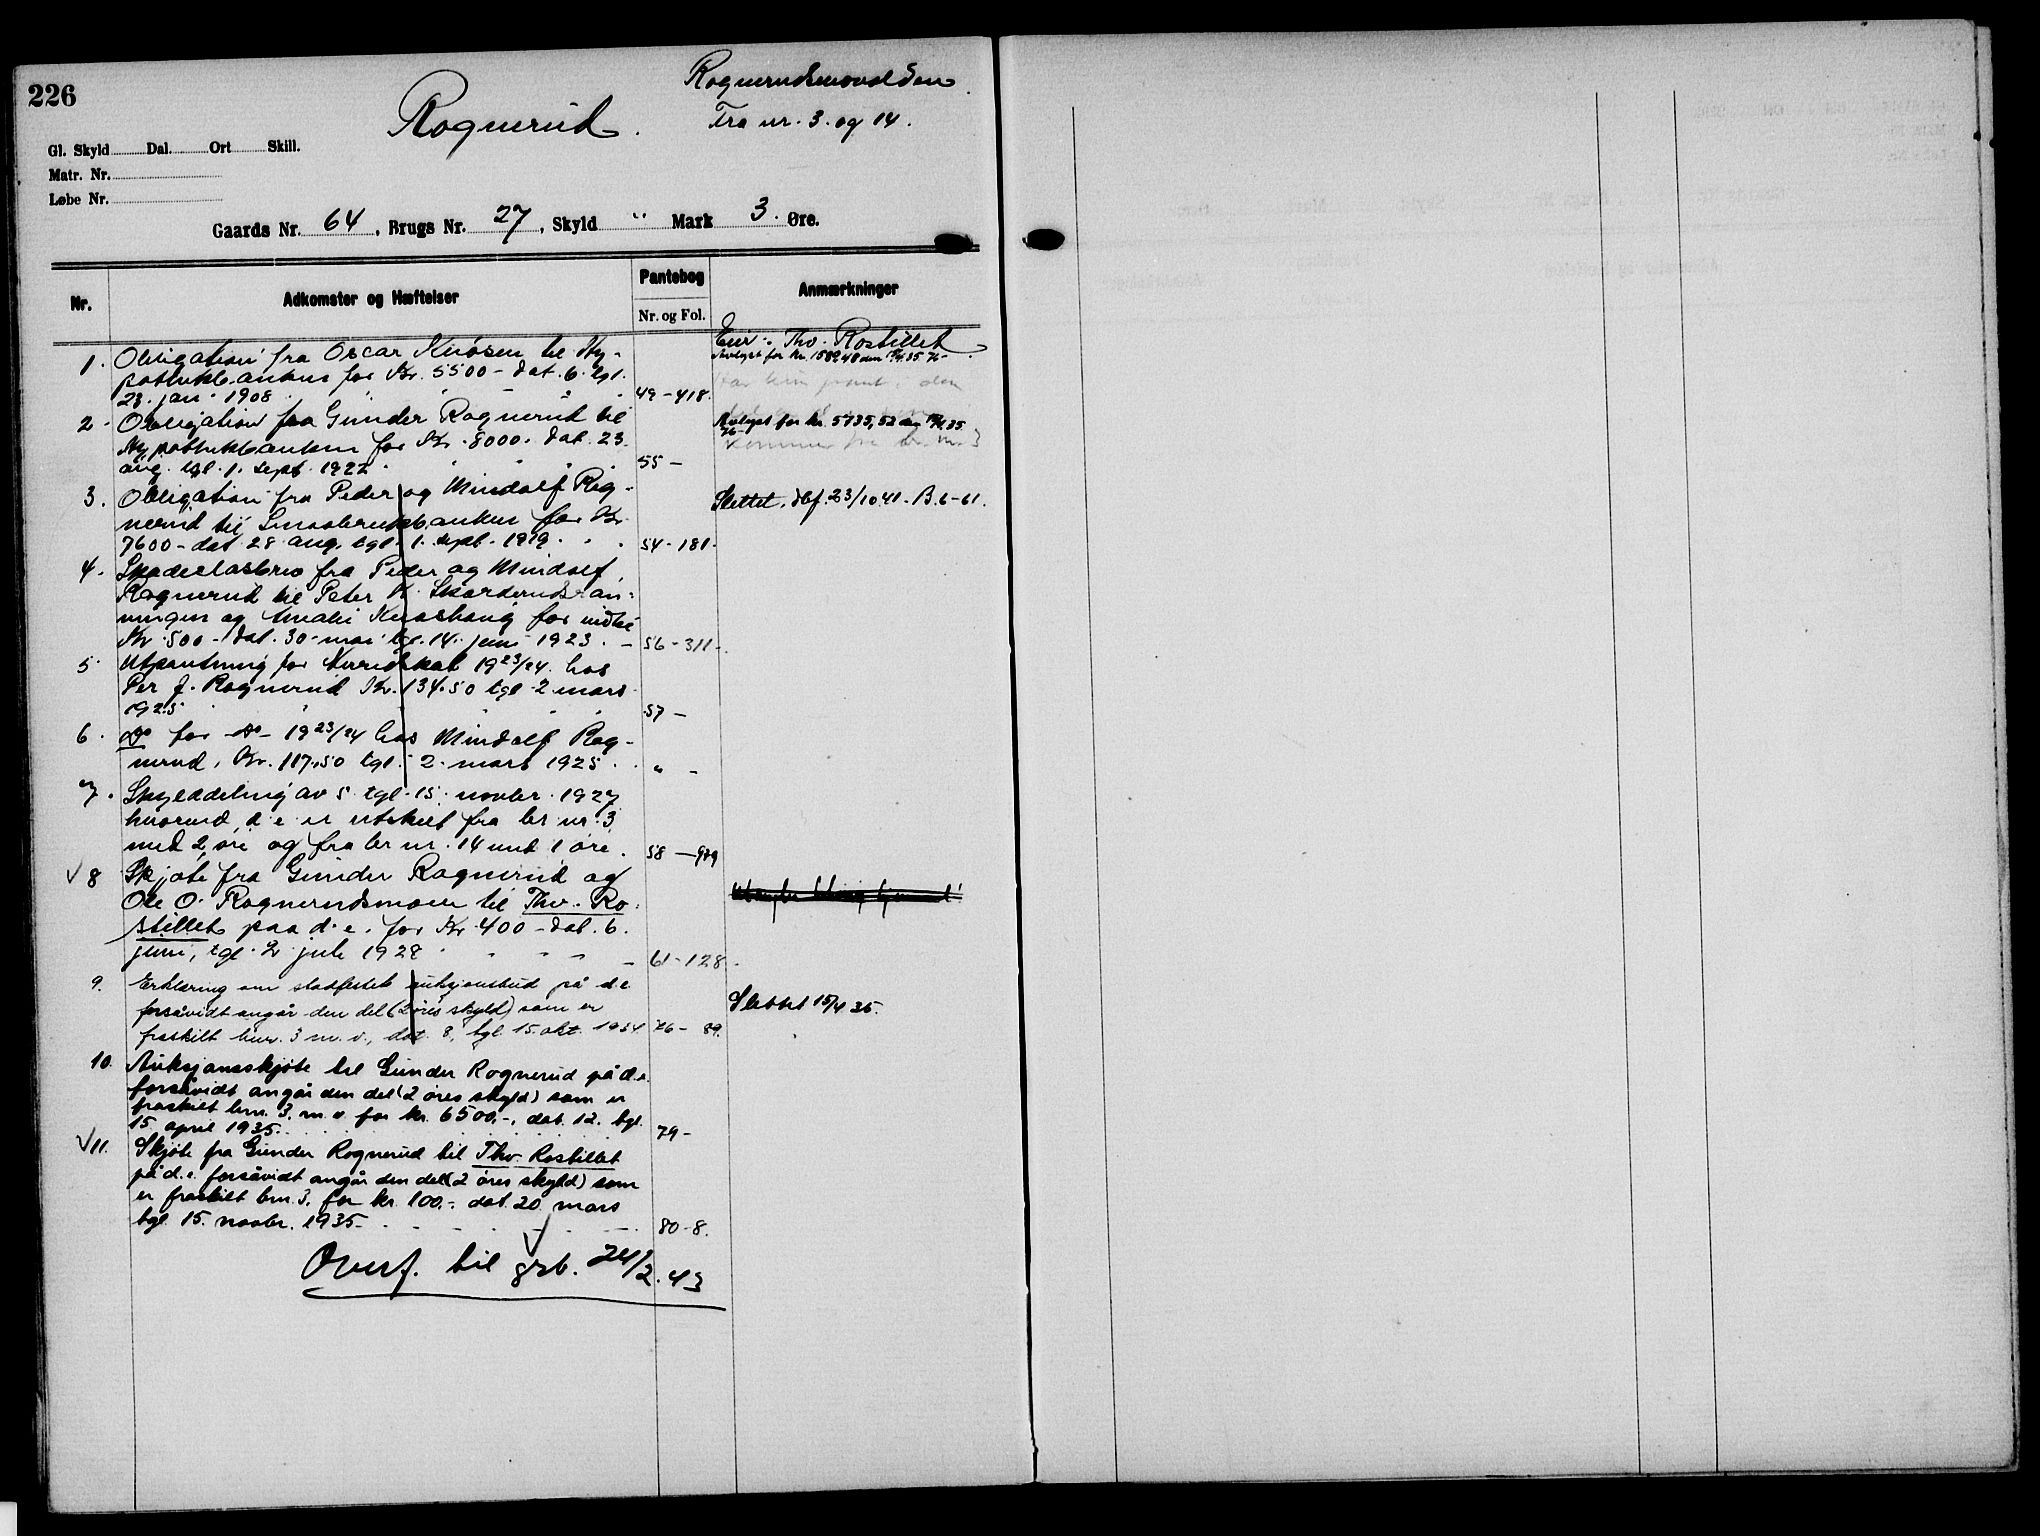 226
Rognerud.
Rognerudsmovolden
Fra nr. 3. og 14.
Gl. Skyld Dal. Ort Skill.
Matr. Nr.
Løbe Nr.
Gaards Nr. 64, Brugs Nr. 27, Skyld " Mark 3. Øre.
Nr. Adkomster og Hæftelser Pantebog Nr. og Fol. Anmærkninger
Eier: Thv. Rostillet
1. Obligation fra Oscar Kiøsen til Hy-
Avlyst for kr. 1589,48 den
potekbanken for Kr. 5500 - dat. 6. tgl.
23. jan. 1908 49-418.
2. Obligation fra Gunder Rognerud til
Avlyst for kr. 5735,52 den
Hypotekbanken for Kr. 8000. dat. 23.
kommer fra br. nr. 3
aug. tgl. 1. sept. 1922 55 -
3. Obligation fra Peder og Mindolf Rog-
Slettet. dbf. 23/10 41. B. 6-61.
nerud til Smaabrukbanken for Kr.
7600 - dat. 28 aug. tgl. 1. sept. 1919. 54-181.
4. Skadesløsbrev fra Peder og Mindolf
Rognerud til Peter K. Skarderudsran-
ningen og Amalie for indtil
Kr. 500 - dat. 30 mai tgl. 14. juni 1923. - 56-311-.
5. Utpantning for 1923/24. hos
Per J. Rognerud Kr. 134.50 tgl. 2 mars
1925 57 -
6. Do for -Do- 1923/24 hos Mindolf Rog-
nerud, Kr. 117,50 tgl. 2. mars 1925. " -
7. Skylddeling av 5 tgl. 15. novbr. 1927
hvorved d. e. er utskilt fra br. nr. 3
med 2 øre og fra br nr. 14 med 1 øre. 58 - 979
√ 8 Skjøte fra Gunder Rognerud og
Ole O. Rognerudsmoen til Thv. Ro-
stillet paa d. e. for Kr. 400 - dat. 6.
juni, tgl. 2 juli 1928 - 61-128.
9. Erklæring om stadfestet auksjonsbud på d e
Slettet 15/4 35.
forsåvidt angår den del (2 øres skyld) som er
fraskilt bnr. 3 m. v., dat. 8, tgl. 15. okt. 1934 76 - 89.
10. Auksjonsskjøte til Gunder Rognerud på d. e.
forsåvidt angår den del (2 øres skyld) som er
fraskilt bnr. 3. m. v. for kr. 6500,-, dat. 12. tgl.
15. april 1935. 79 -
√ 11. Skjøte fra Gunder Rognerud til Thv. Rostillet
på d. e. forsåvidt angår den del (2 øres skyld) som
er fraskilt bnr. 3. for kr. 100.-. dat. 20 mars
tgl. 15. novbr. 1935 - 80-8.
Overf. til grb. 24/2. 43